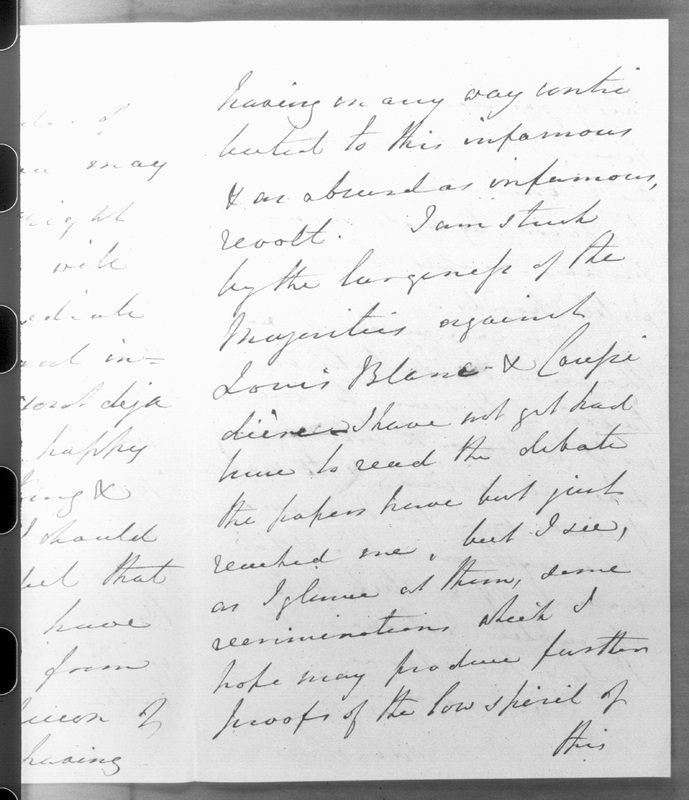 of
may
might
will
ediate
in=
deja
happy
King &
I should
that
have
from
of
having
having in any way contri
buted to this infamous
& as absurd as infamous,
revolt. I am struck
by the largeness of the
Majorities against
Louis Blanc & Caussi
dière I have not yet had
time to read the debate
the papers have but just
reached me, but I see,
as I glance at them, some
recriminations which I
hope may produce further
proofs of the low spirit of
this